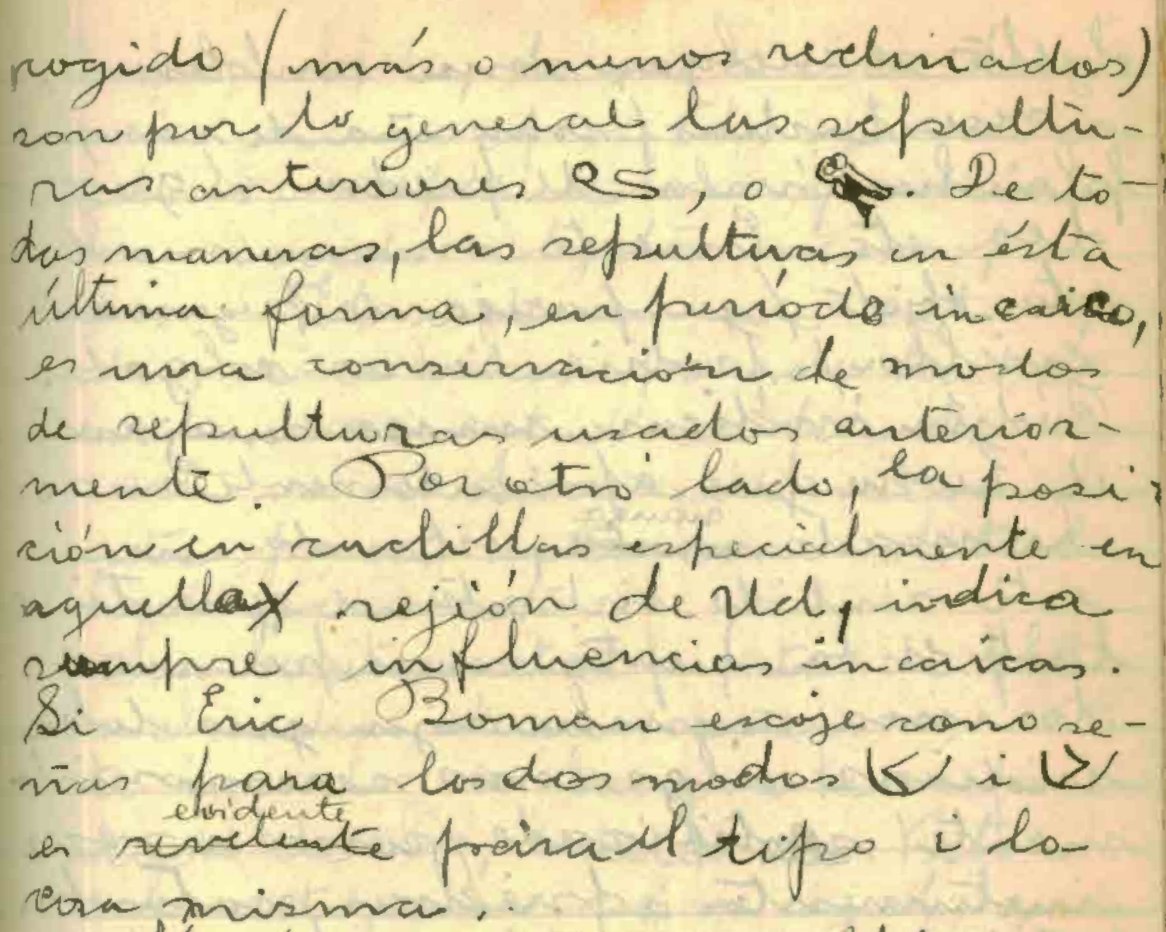 cogido (más o menos reclinados)
son por lo general las sepultu-
ras anteriores , o . De to-
das maneras, las sepulturas en ésta
última forma, en período incaico,
es una conservación de modos
de sepulturas usados anterior-
mente. Por otro lado, la posi-
ción en cuclillas especialmente en
aquella rejión de Ud, indica
siempre influencias incaicas.
Si Eric Boman escoje como se-
ñas para los dos modos i
evidente
es para el tipo i la
cosa misma.